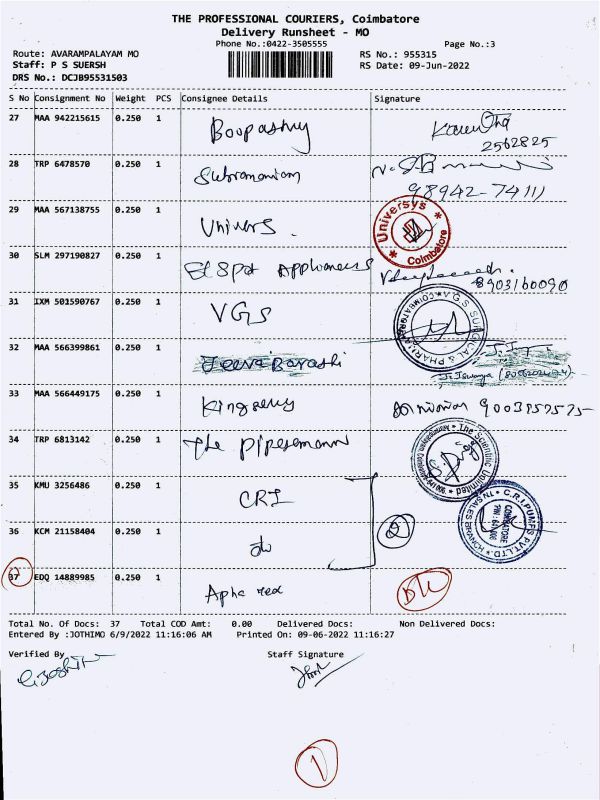 THE PROFESSIONAL COURIERS, Coimbatore
Delivery Runsheet - MO
Phone No.:0422-3505555 Page No.:3
Route: AVARAMPALAYAM MO RS No.: 955315
Staff: P S SUERSH RS Date: 09-Jun-2022
DRS No.: DCJB95531503
S No Consignment No Weight PCS Consignee Details Signature
27 MAA 942215615 0.250 1
2562825
28 TRP 6478570 0.250 1 Subramaniam
98942-74111
29 MAA 567138755 0.250 1 Univers Universys Coimbatore
30 SLM 297190827 0.250 1
8903160090
31 IXM 501590767 0.250 1 VGS
32 MAA 566399861 0.250 1 Jeeva Barashi
33 MAA 566449175 0.250 1
34 TRP 6813142 0.250 1 The The Scientific Unlimited
35 KMU 3256486 0.250 1 CRI
C.R.I.PUMPS PVT.LTD. SALES BRANCH COIMBATORE
36 KCM 21158404 0.250 1 do 2
37 EDQ 14889985 0.250 1 Apha med
Total No. Of Docs: 37 Total COD Amt: 0.00 Delivered Docs: Non Delivered Docs:
Entered By :JOTHIMO 6/9/2022 11:16:06 AM Printed On: 09-06-2022 11:16:27
Verified By Staff Signature
1